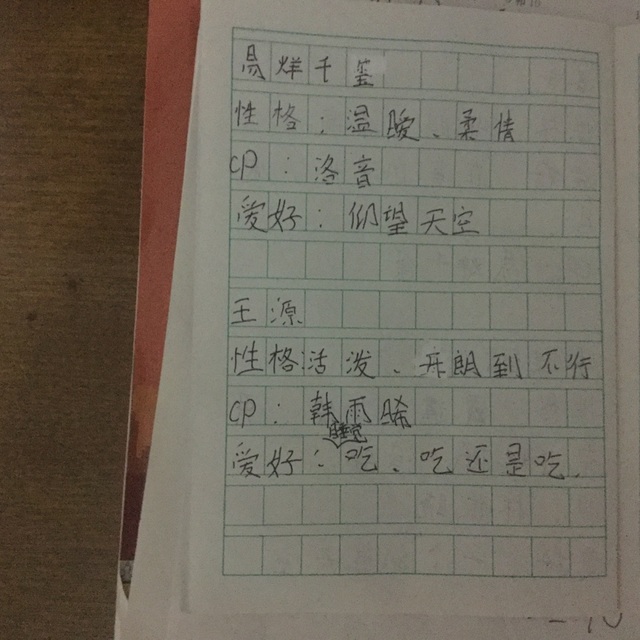 易烊千玺
性格：温暖、柔情
CP：洛音
爱好：仰望天空
王源
性格活泼、开朗到不行
CP：韩雨晞
爱好：吃、吃还是吃.